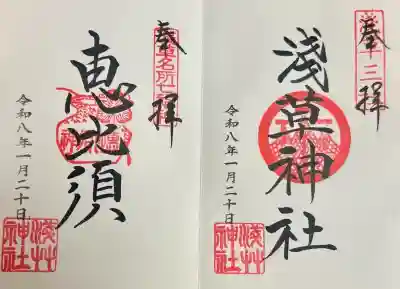 奉拝
淺草神社
令和八年一月二十日
淺草
神社
奉拝
恵比須
令和八年一月二十日
淺草
神社